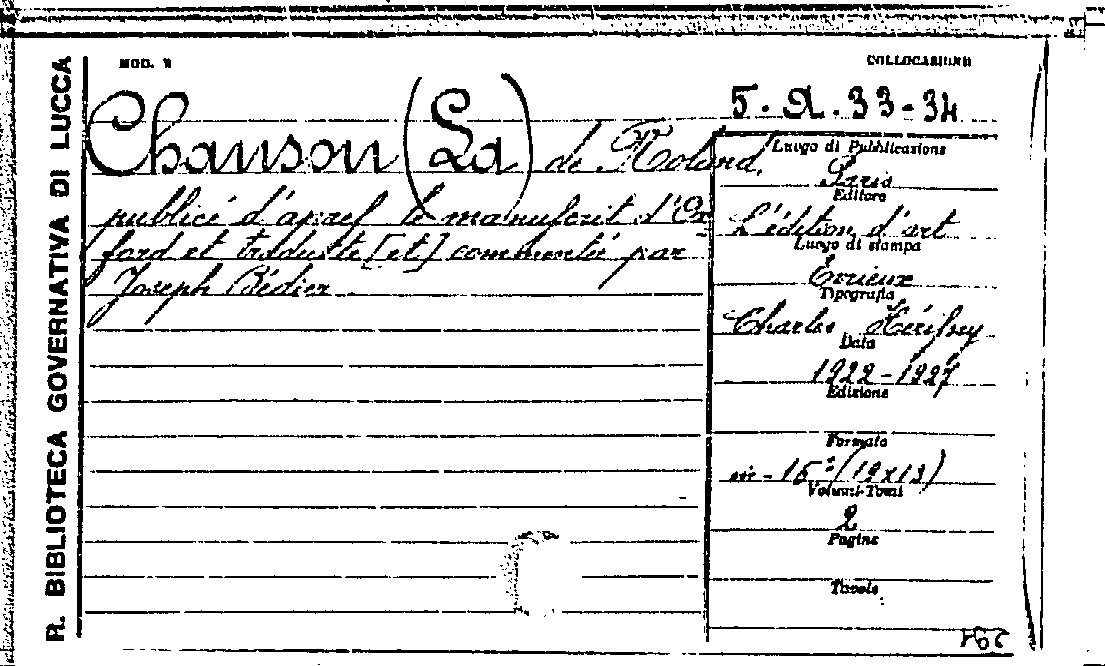 R. BIBLIOTECA GOVERNATIVA DI LUCCA
MOD. V
COLLOCAZIONE
5. A. 33-34
Chanson (La) de Roland,
publicé d'apres le manuscrit d'Ox
ford et traduite [et] commentée par
Joseph Bédier.
Luogo di Pubblicazione
Paris
Editore
L'édition d'art
Luogo di stampa
Evrieux
Tipografia
Charles Hérissey
Data
1922-1927
Edizione
Formato
in-16° (19x13)
Volumi-Tomi
2
Pagine
Tavole